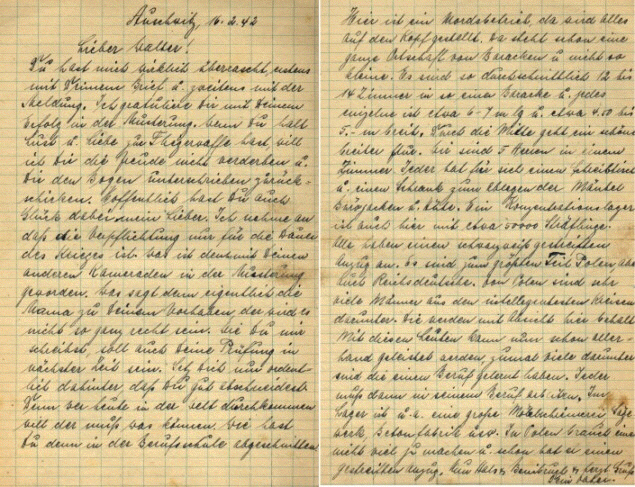 Auschwitz, 16.2.42
Lieber Walter!
Du hast mich wirklich überrascht, erstens
mit Deinem Brief u. zweitens mit der
Meldung. Ich gratuliere Dir mit Deinem
Erfolg in der Musterung. Wenn Du halt
Lust u. Liebe zu Fliegerwaffe hast, will
ich Dir die Freude nicht verderben u.
Dir den Bogen unterschrieben zurück-
schicken. Hoffentlich hast Du auch
Glück dabei mein Lieber. Ich nehme an
daß die Verpflichtung nur für die Dauer
des Krieges ist. Was ist denn mit Deinen
anderen Kameraden in der Musterung
geworden. Was sagt denn eigentlich die
Mama zu Deinem Vorhaben, der wird es
nicht so ganz recht sein. Wie Du mir
schreibst, soll auch Deine Prüfung in
nächster Zeit sein. Ich bitt nur ordent-
lich dahinter, daß Du gut abschneidest.
Denn wer heute in der Welt durchkommen
will der muß was können. Wie hast
Du denn in der Berufsschule abgeschnitten
Hier ist ein Mordsbetrieb, da wird alles
auf den Kopf gestellt. Da steht schon eine
ganze Ortschaft von Baracken u. nicht so
kleine. Es sind so durchschnittlich 12 bis
14 Zimmer in so einer Baracke u. jedes
einzelne ist etwa 6-7 m lg u. etwa 4.50 bis
5.- m breit. Durch die Mitte geht ein schöner
breiter Flur. Wir sind 5 Herren in einem
Zimmer. Jeder hat für sich einen Schreibtisch
u. einen Schrank zum Ablegen der Mäntel
u. Hüte. Ein Konzentrationslager
ist auch hier mit etwa 30000 Häftlinge.
Alle haben einen schwarzweiß gestreiften
Anzug an. Es sind zum größten Teil Polen, aber
auch Reichsdeutsche. Von Polen sind sehr
viele Männer aus den intelligentesten Kreisen
darunter. Die werden mit Absicht hier behalten
Mit diesen Leuten kann nun schon aller-
hand geleistet werden, zumal viele darunter
sind die einen Beruf gelernt haben. Jeder
muß dann in seinem Beruf arbeiten. Im
Lager ist u.a. eine große Säge-
werk, Betonfabrik usw. In Polen braucht einer
nicht viel zu machen u. schon hat er einen
gestreiften Anzug. Nun Hals & Beinbruch & herzl. Gruß
Dein Vater.